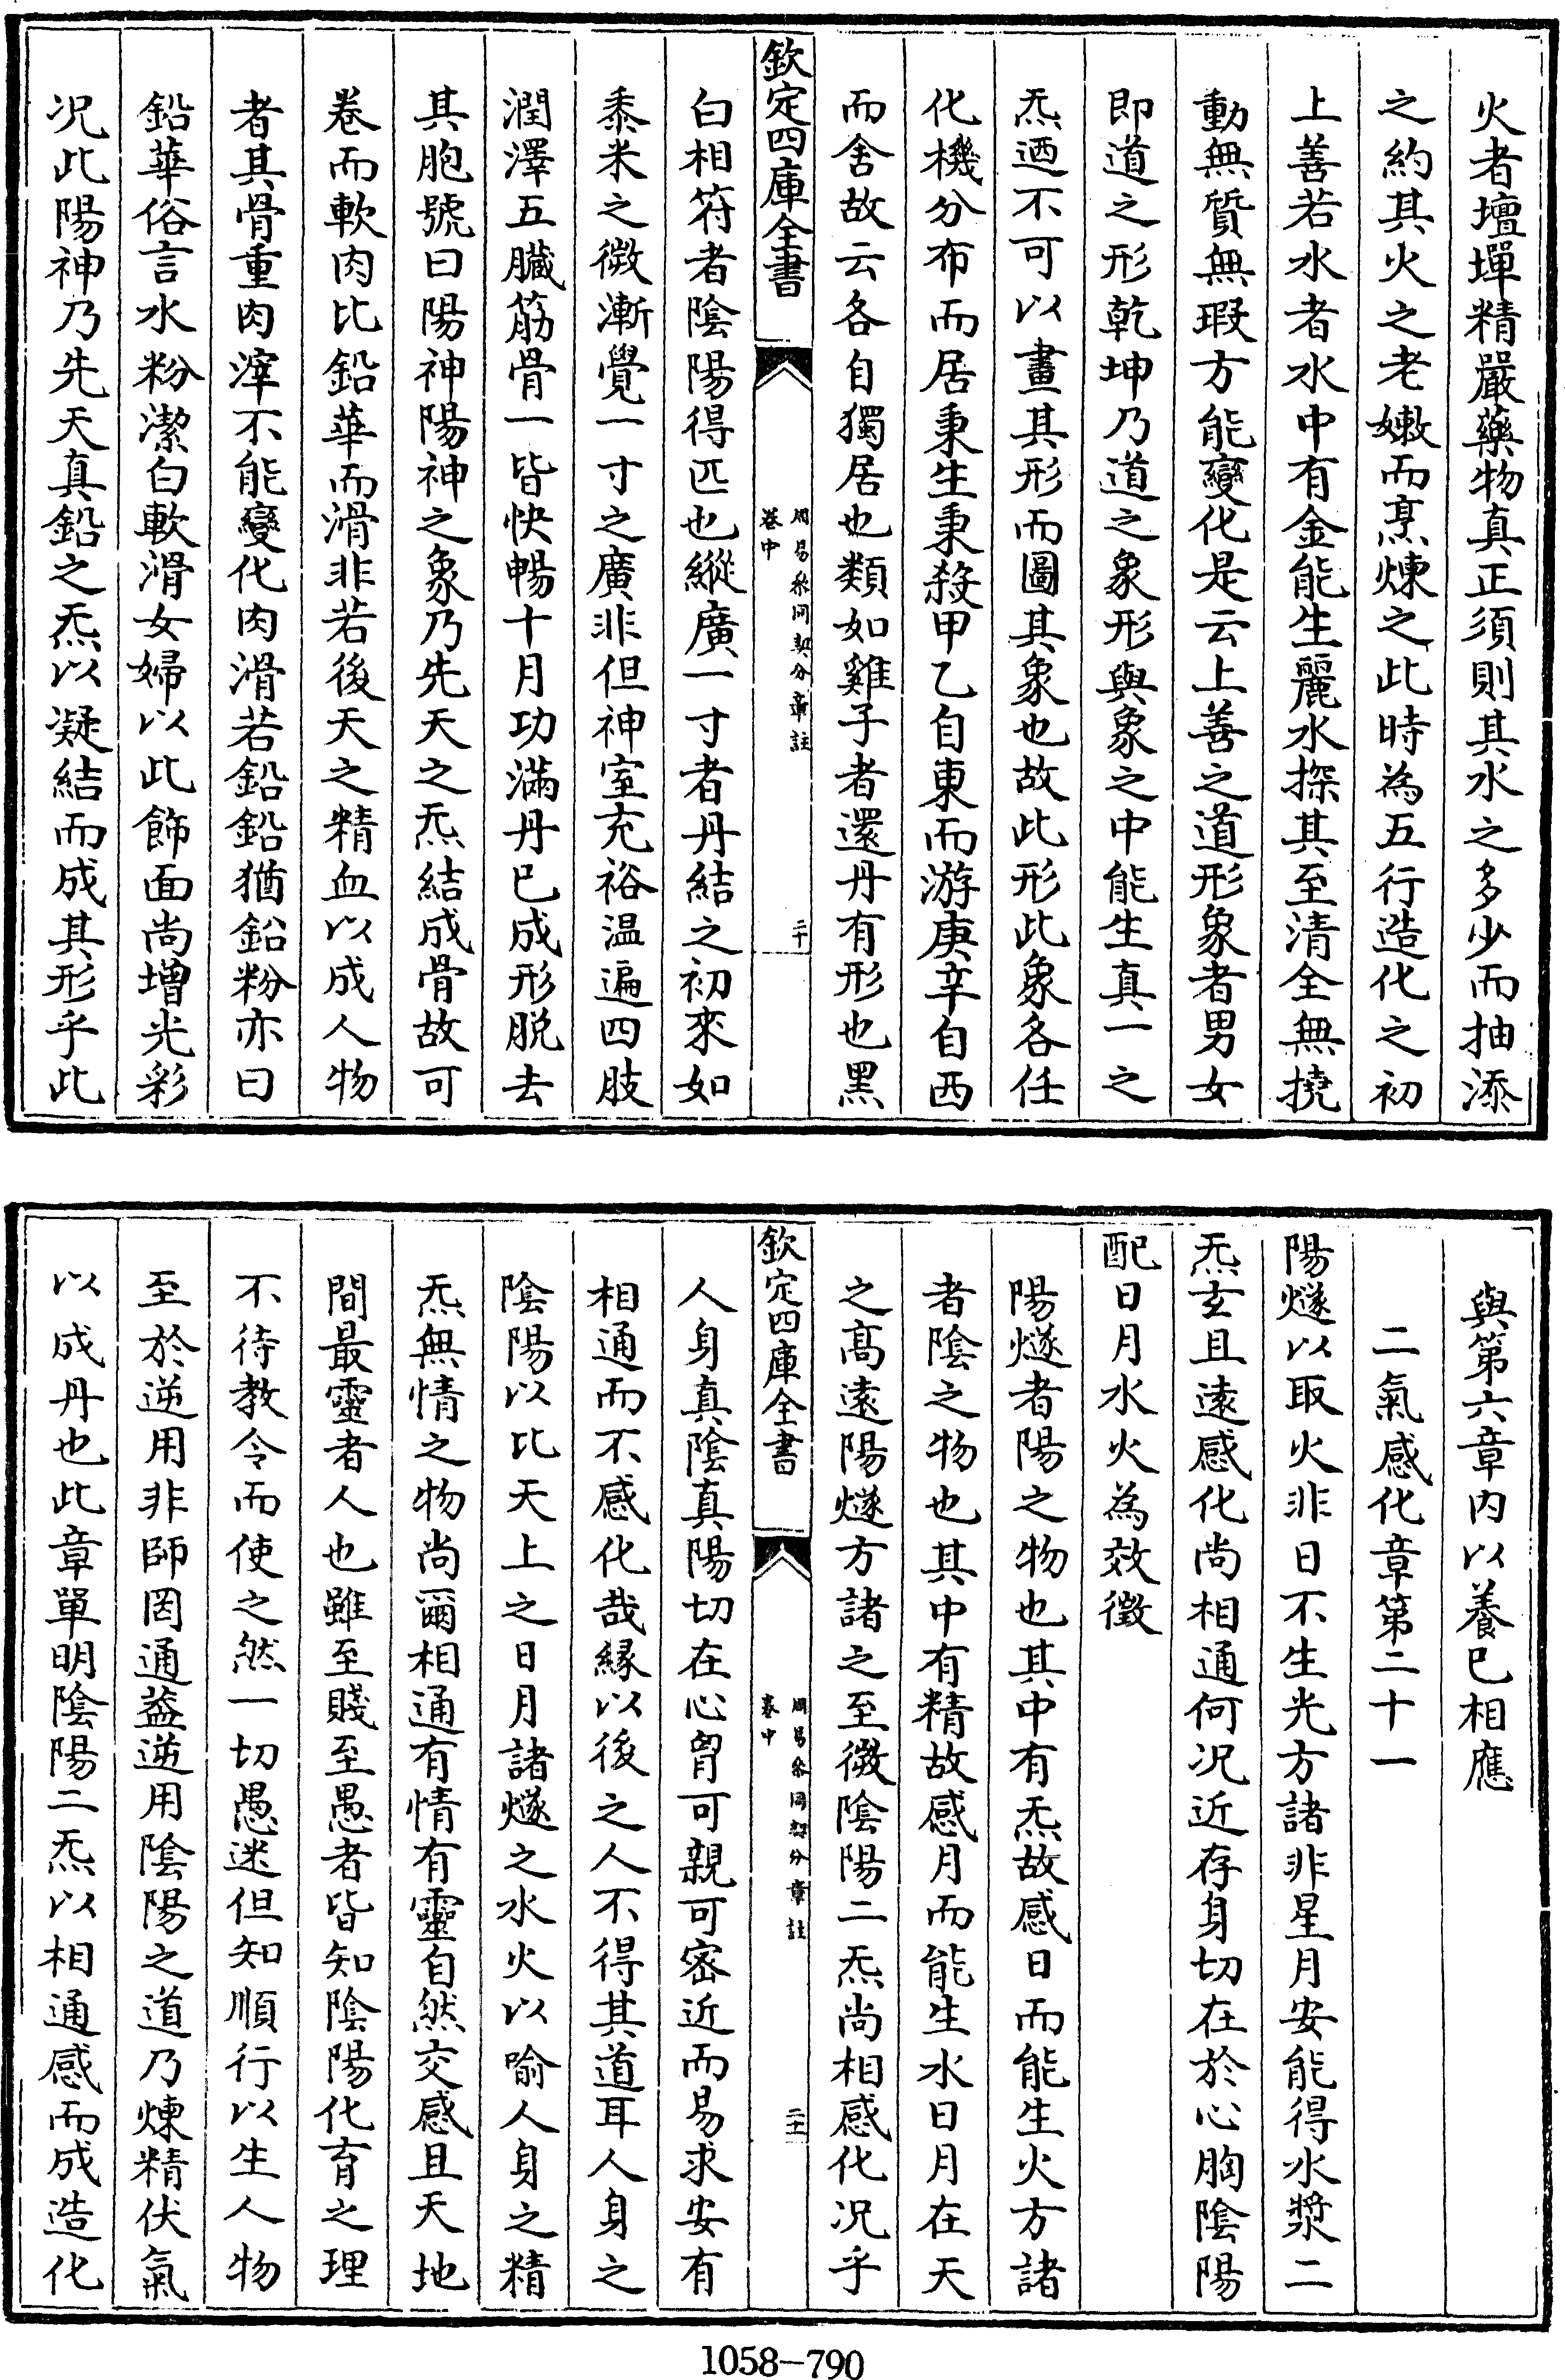 火者壇墠精嚴藥物真正須則其水之多少而抽添
之約其火之老嫩而烹煉之此時為五行造化之初
上善若水者水中有金能生麗水探其至清全無撓
動無質無瑕方能變化是云上善之道形象者男女
即道之形乾坤乃道之象形與象之中能生真一之
炁迺不可以畫其形而圖其象也故此形此象各任
化機分布而居秉生秉殺甲乙自東而游庚辛自西
而舍故云各自獨居也類如雞子者還丹有形也黑
欽定四庫全書
周易參同契分章註
卷中
二十
白相符者陰陽得匹也縱廣一寸者丹結之初來如
黍米之微漸覺一寸之廣非但神室充裕温遍四肢
潤澤五臟筋骨一皆快暢十月功滿丹已成形脱去
其胞號曰陽神陽神之象乃先天之炁結成骨故可
卷而軟肉比鉛華而滑非若後天之精血以成人物
者其骨重肉滓不能變化肉滑若鉛鉛猶鉛粉亦曰
鉛華俗言水粉潔白軟滑女婦以此飾面尚增光彩
况此陽神乃先天真鉛之炁以凝結而成其形乎此
與第六章内以養已相應
二氣感化章第二十一
陽燧以取火非日不生光方諸非星月安能得水漿二
炁玄且遠感化尚相通何况近存身切在於心胸陰陽
配日月水火為效徵
陽燧者陽之物也其中有炁故感日而能生火方諸
者陰之物也其中有精故感月而能生水日月在天
之高遠陽燧方諸之至微陰陽二炁尚相感化况乎
欽定四庫全書
周易參同契分章註
卷中
二十一
人身真陰真陽切在心胷可親可密近而易求安有
相通而不感化哉緣以後之人不得其道耳人身之
陰陽以比天上之日月諸燧之水火以喻人身之精
炁無情之物尚爾相通有情有靈自然交感且天地
間最靈者人也雖至賤至愚者皆知陰陽化育之理
不待教令而使之然一切愚迷但知順行以生人物
至於逆用非師罔通蓋逆用陰陽之道乃煉精伏氣
以成丹也此章單明陰陽二炁以相通感而成造化
1058-790